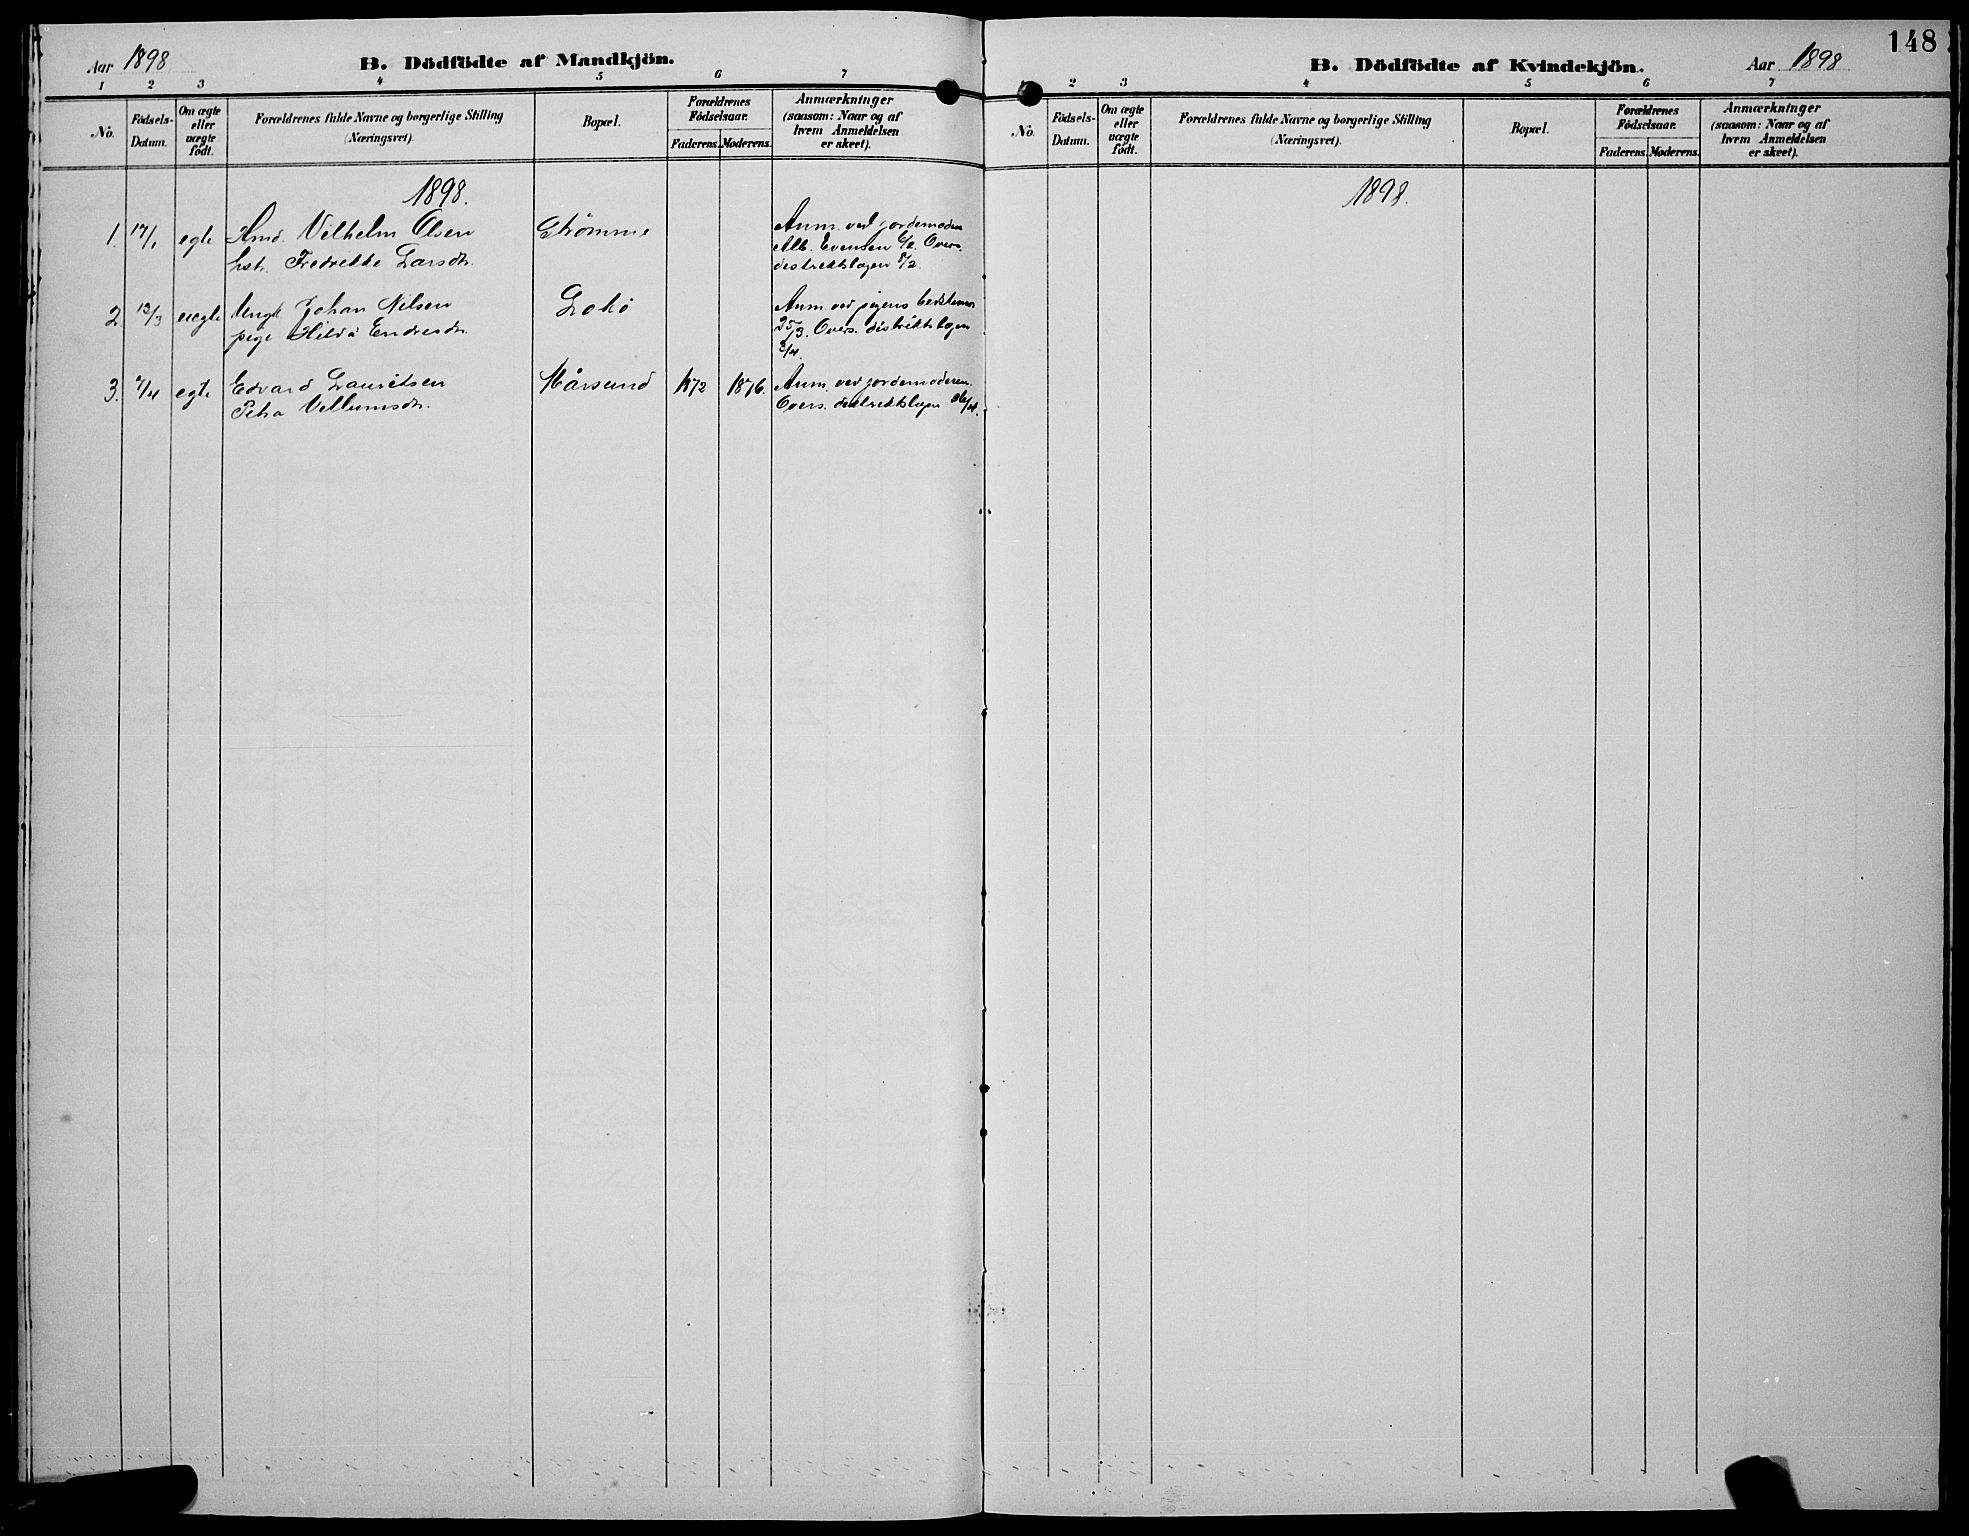 Aar 1898
B. Dödfödte af Mandkjön.
1 2 3 4 5 6 7
No.
Födsels-
Datum.
Om ægte
eller
uægte
födt.
Forældrenes fulde Navne og borgerlige Stilling
(Næringsvei).
Bopæl.
Forældrenes
Födselsaar.
Faderens. Moderens.
Anmærkninger
(saasom: Naar og af
hvem Anmeldelsen
er skeet).
1898.
1. 17/1 egte Hmd. Vilhelm Olsen Strømme Anm. ved jordemoder
hstr. Fredrekke Larsdr. Alb. Evensen 6/2. Overs.
distriktslægen 8/2.
2 13/3 uegte Ungk. Johan Nilsen Anm. ved pigens bedstemor
pige Hilda Endresdr. 25/3. Overs. distriktslægen
/4.
3. 7/4 egte Edvard Lauritsen Mårsund 1872 1876. Anm. ved jordemoderen.
Petra Vellumsdr. Overs. distriktslægen /4.
148
B. Dödfödte af Kvindekjön.
Aar 1898.
2 3 4 5 6 7
No.
Födsels-
Datum.
Om ægte
eller
uægte
födt.
Forældrenes fulde Navne og borgerlige Stilling
(Næringsvei).
Bopæl.
Forældrenes
Födselsaar.
Faderens. Moderens.
Anmærkninger
(saasom: Naar og af
hvem Anmeldelsen
er skeet).
1898.